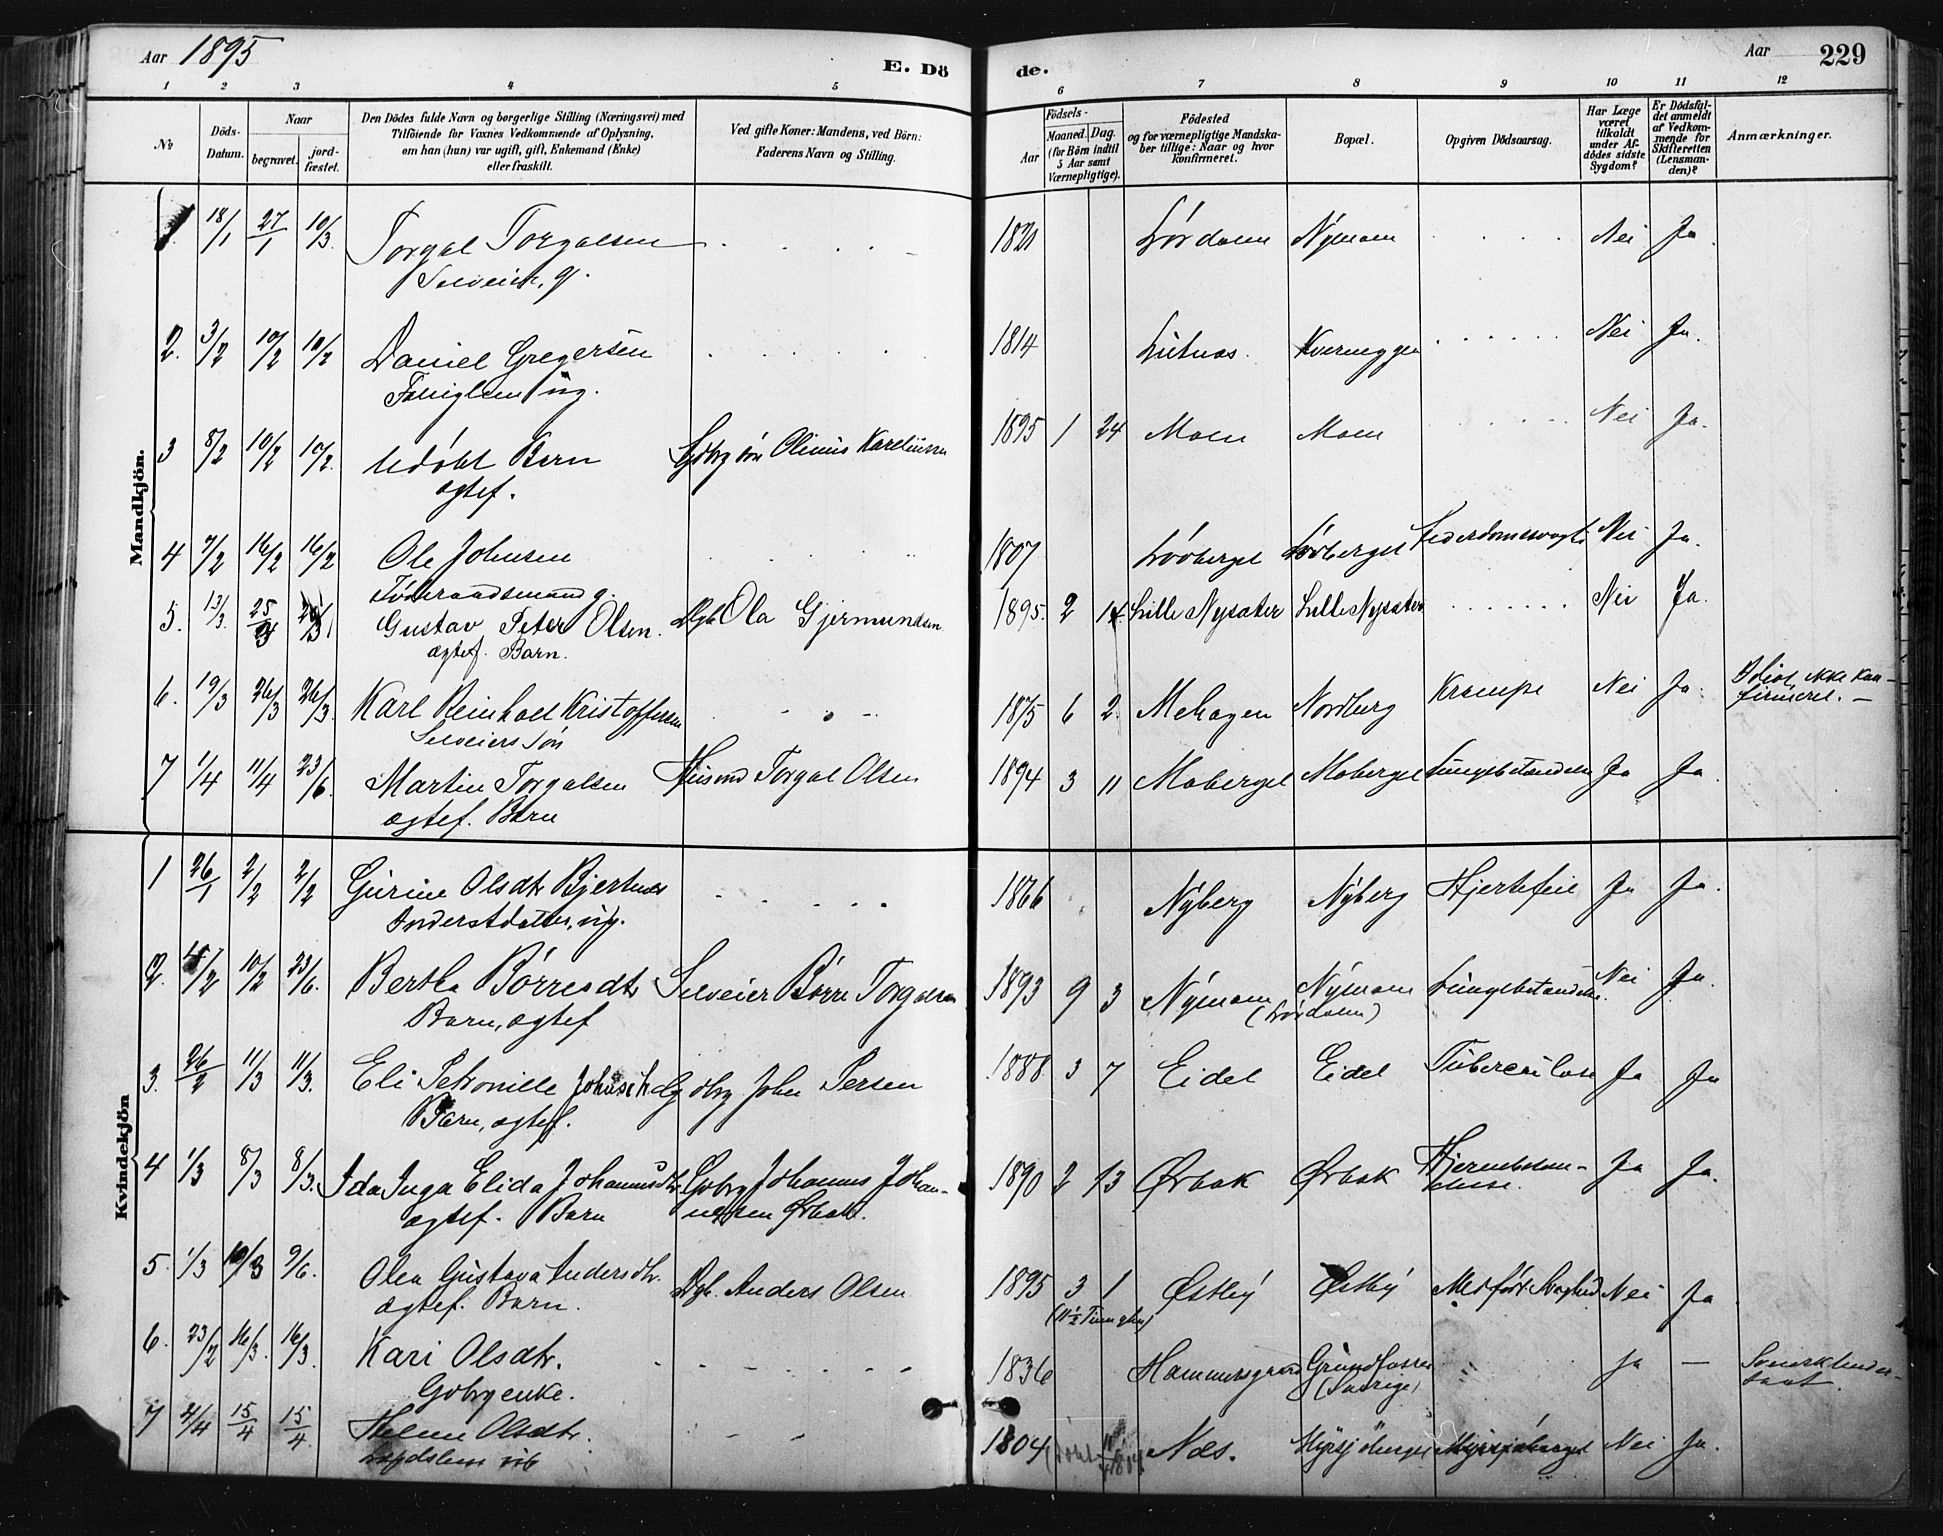 Aar 1895 E. Dö de. Aar 229
1 2 3 4 5 6 7 8 9 10 11 12
No Döds-Datum. Naar begravet. jordfæstet. Den Dödes fulde Navn og borgerlige Stilling (Næringsvei) med Tilföiende for Voxnes Vedkommende af Oplysning, om han (hun) var ugift, gift, Enkemand (Enke) eller fraskilt. Ved gifte Koner: Mandens, ved Börn: Faderens Navn og Stilling. Födsels- Aar Maaned. Dag. (for Börn indtil 5 Aar samt Værnepligtige). Födested og for værnepligtige Mandskaber tillige: Naar og hvor Konfirmeret. Bopæl. Opgiven Dödsaarsag. Har Læge været tilkaldt under Afdödes sidste Sygdom? Er Dödsfaldet anmeldt af Vedkommende for Skifteretten (Lensmanden)? Anmærkninger.
Mandkjön.
18/1 27/1 10/3 Torgal Torgalsen 1821 Lördalen Nymoen Nei Ja.
Selveier, g.
2. 3/2 10/2 10/2 Daniel Gregersen 1814 Lutnæs. Kverneggen Nei Ja.
ug.
3 8/2 10/2 10/2. Udöbt Barn Gdbrg sön Olinus Kareliussen 1895 1 24 Moen Moen Nei Ja.
ægtef.
4 7/2 16/2 16/2 Ole Johnsen 1807 Lövberget Lövberget Nei Ja.
Föderaadsmand g.
5. 13/3. 25/3 Gustav Peter Olsen. Ola Gjermundsen 1895. 2 14 Lille Nysæter Lille Nysæter Nei Ja.
ægtef. Barn.
6. 19/3 26/3 26/3. Karl Reinholt Kristoffersen 1875 6 2. Mehagen Nordberg Krampe Nei Ja. Idiot, ikke kon-
Selveiers sön firmeret. —
7 1/4 11/4 23/6. Martin Torgalsen Husmd Torgal Olsen 1894 3 11 Moberget Moberget Lungebetændelse Ja Ja.
ægtef. Barn
Kvindekjön
1 26/1 2/2 2/2 Gurine Olsdtr Bjertnes 1866 Nyberg Nyberg Hjertefeil Ja Ja.
ug.
2. 10/2 23/6. Bertha Börresdtr Selveier Börre Torgalsen 1893 9 3 Nymoen Nymoen Lungebetændelse. Nei Ja.
Barn, ægtef (Lördalen)
3. 26/2 11/3 11/3. Eli Petronille Johnsdtr Gdbrg John Persen 1888 3 7 Eidet Eidet Tuberculose Ja Ja
Barn, ægtef.
4 1/3 8/3 8/3. Ida Inga Elida Johannesdtr. Gdbrg Johannes Johan- 1890 2 13 Ørbæk Ørbæk Ja Ja.
ægtef. Barn nessen Ørbæk.
5. 1/3 10/3 9/6. Olea Gustava Andersdtr. Dgl. Anders Olsen 1895 3 1 Østby Østby Medfödt Svaghed Nei Ja
ægtef. Barn.
6. 23/2 16/3. 16/3. Kari Olsdtr. 1836 Hammersgaard Grundfossen Ja —
Gdbrgenke. (Sverige)
7 4/4 15/4 15/4. Helene Olsdtr. 1804 Næs. Myrsjöberget Myrsjöberget Nei Ja.